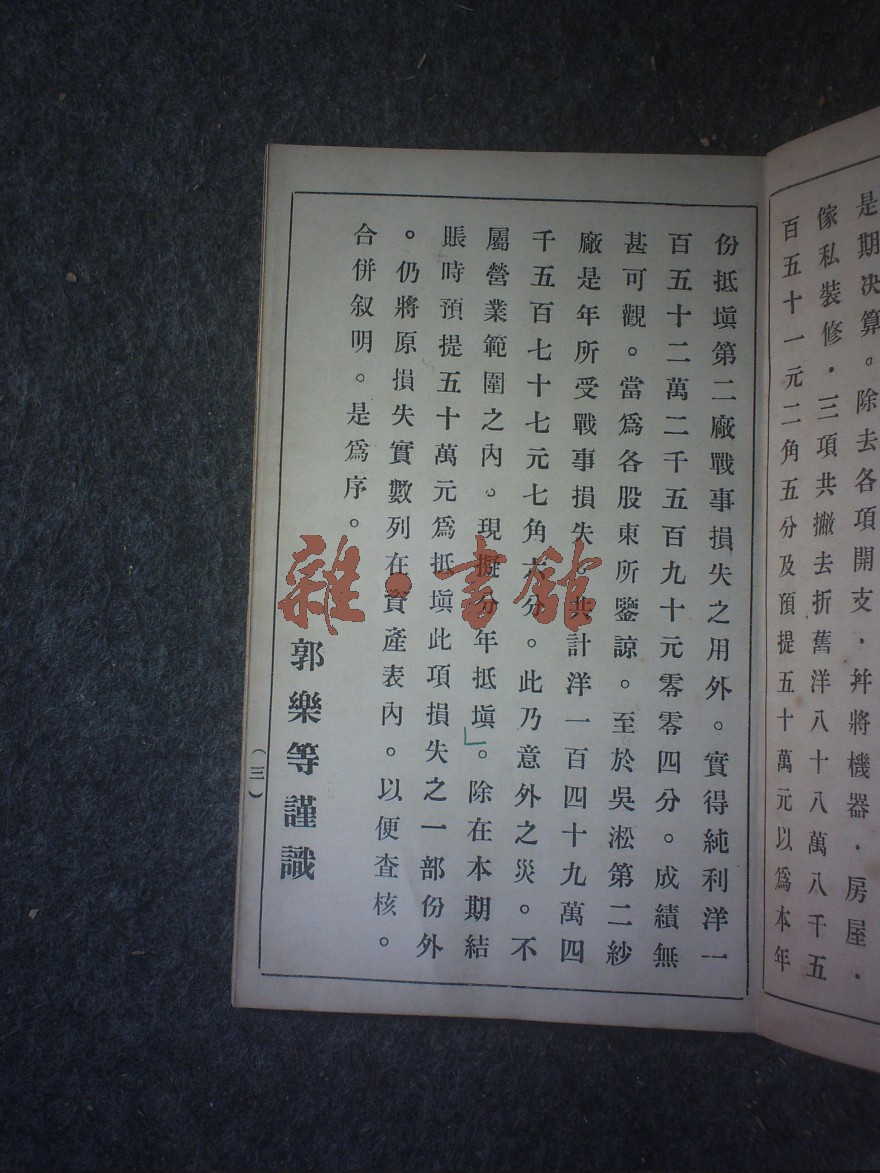 是期决算。除去各項開支，幷將機器．房屋．
傢私裝修．三項共撇去折舊洋八十八萬八千五
百五十一元二角五分及預提五十萬元以爲本年
份抵塡第二廠戰事損失之用外。實得純利洋一
百五十二萬二千五百九十元零零四分。成績無
甚可觀。當爲各股東所鑒諒。至於吳淞第二紗
廠是年所受戰事損失。共計洋一百四十九萬四
千五百七十七元七角六分。此乃意外之災。不
屬營業範圍之內。現擬分年抵塡。除在本期結
賬時預提五十萬元爲抵塡此項損失之一部份外
。仍將原損失實數列在資產表內。以便查核。
合併叙明。是爲序。
郭樂等謹識
（三）
雜·書館